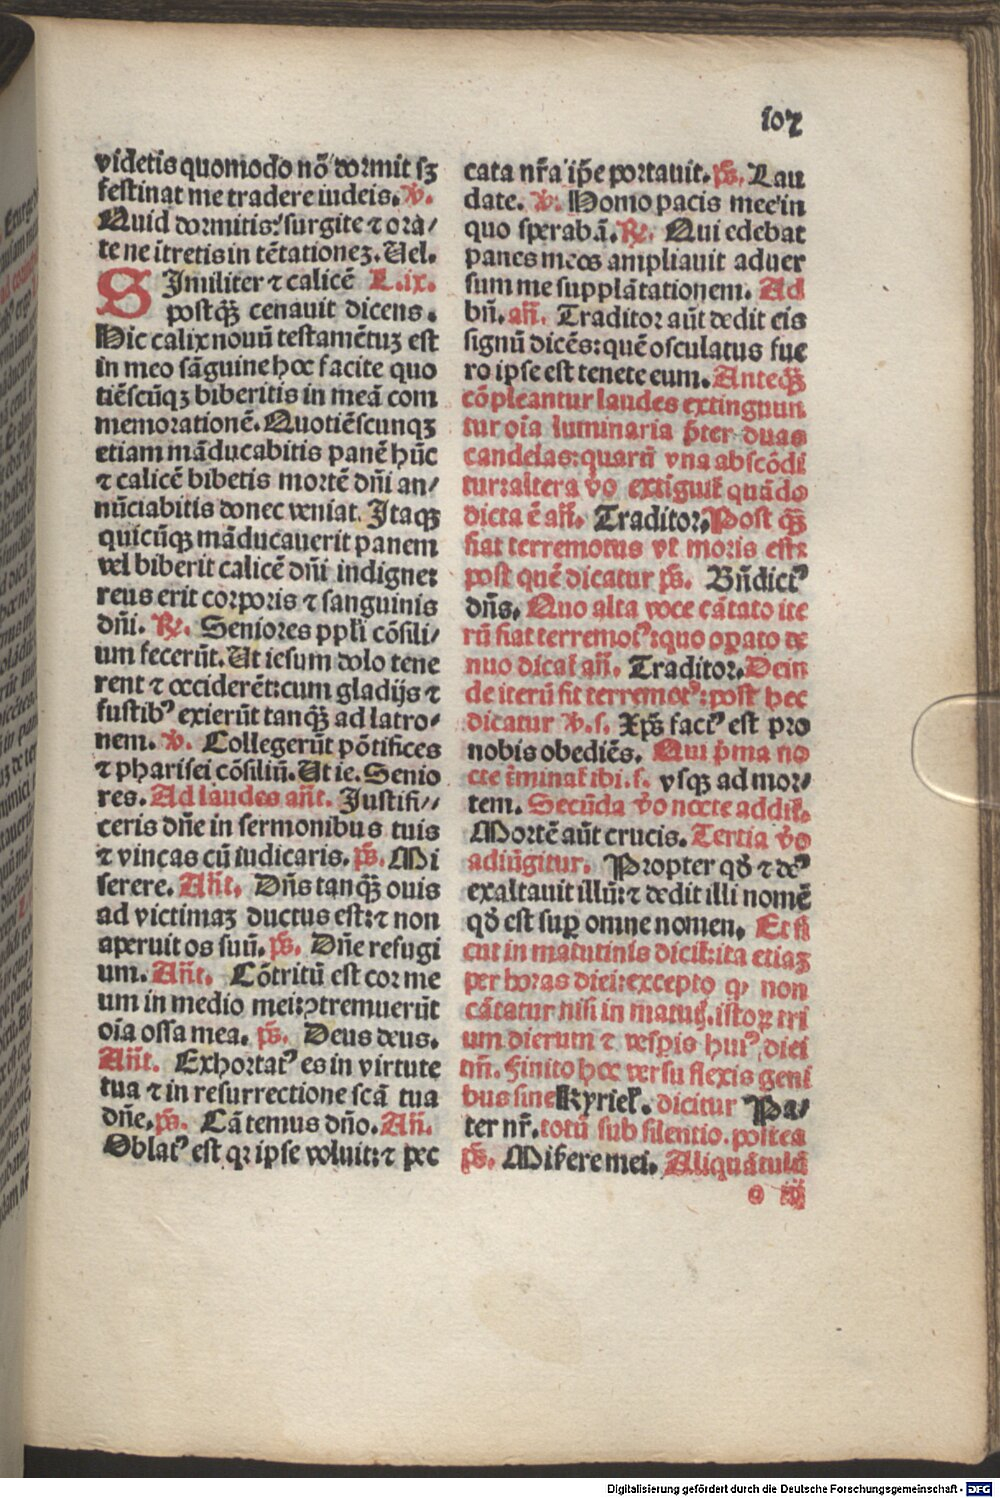 107
videtis quomodo nõ dormit sꝫ
festinat me tradere iudeis. v̾.
Quid dormitis? surgite ⁊ ora/
te ne ĩtretis in tẽtationeʒ. Uel.
SImiliter ⁊ calicẽ L.ix.
postq̃ꝫ cenauit dicens.
Hic calix nouũ testamẽtuʒ est
in meo sãguine hoc facite quo
tiẽscũqʒ biberitis in meã com
memorationẽ. Quotiẽscunqʒ
etiam mãducabitis panẽ hũc
⁊ calicẽ bibetis mortẽ dñi an/
nũciabitis donec veniat. Itaqʒ
quicũqʒ mãducauerit panem
vel biberit calicẽ dñi indigne:
reus erit corporis ⁊ sanguinis
dñi. R̃. Seniores ppl̃i cõsili/
um fecerũt. Ut iesum dolo tene
rent ⁊ occiderẽt: cum gladijs ⁊
fustibꝰ exierũt tanq̃ꝫ ad latro/
nem. v̾. Collegerũt põtifices
⁊ pharisei cõsiliũ. Ut ie. Senio
res. Ad laudes añt. Justifi//
ceris dñe in sermonibus tuis
⁊ vincas cũ iudicaris. p̃s. Mi
serere. Añt. Dñs tanq̃ꝫ ouis
ad victimaʒ ductus est: ⁊ non
aperuit os suũ. p̃s. Dñe refugi
um. Añt. Cõtritũ est cor me
um in medio mei: ꝯtremuerũt
oĩa ossa mea. p̃s. Deus deus.
Añt. Exhortatꝰ es in virtute
tua ⁊ in resurrectione scã tua
dñe. p̃s. Cãtemus dño. Añ.
Oblatꝰ est qꝛ ipse voluit: ⁊ pec
cata nr̃a ip̃e portauit. p̃s. Lau
date. v̾. Homo pacis mee in
quo sperabã. R̃. Qui edebat
panes meos ampliauit aduer
sum me supplãtationem. Ad
bñ. añ. Traditor aũt dedit eis
signũ dicẽs: quẽ osculatus fue
ro ipse est tenete eum. Anteq̃ꝫ
cõpleantur laudes extinguun
tur oĩa luminaria p̃ter duas
candelas: quarũ vna abscõdi
tur: altera v̾o extiguit̃ quãdo
dicta ẽ añ. Traditor. Post q̃ꝫ
fiat terremotus vt moris est:
post quẽ dicatur p̃s. Bñdictꝰ
dñs. Quo alta voce cãtato ite
rũ fiat terremotꝰ: quo oꝑato de
nuo dicat̃ añ. Traditor. Dein
de iterũ fit terremotꝰ: post hec
dicatur v̾.s. Xp̃s factꝰ est pro
nobis obediẽs. Qui p̃ma no
cte t̃minat̃ ibi.s. vsqʒ ad mor/
tem. Secũda v̾o nocte addit̃.
Mortẽ aũt crucis. Tertia v̾o
adiũgitur. Propter qd̾ ⁊ deꝰ
exaltauit illũ: ⁊ dedit illi nomẽ
qd̾ est suꝑ omne nomen. Et si
cut in matutinis dicit̃: ita etiaʒ
per horas diei: excepto qꝫ non
cãtatur nisi in matut̃. istoꝝ tri
um dierum ⁊ vesꝑis huiꝰ diei
tm̃. Finito hoc versu flexis geni
bus sine Kyriel̃. dicitur Pa/
ter nr̃. totũ sub silentio. postea
p̃s. Miserere mei. Aliquãtulũ
o iij
Digitalisierung gefördert durch die Deutsche Forschungsgemeinschaft - DFG